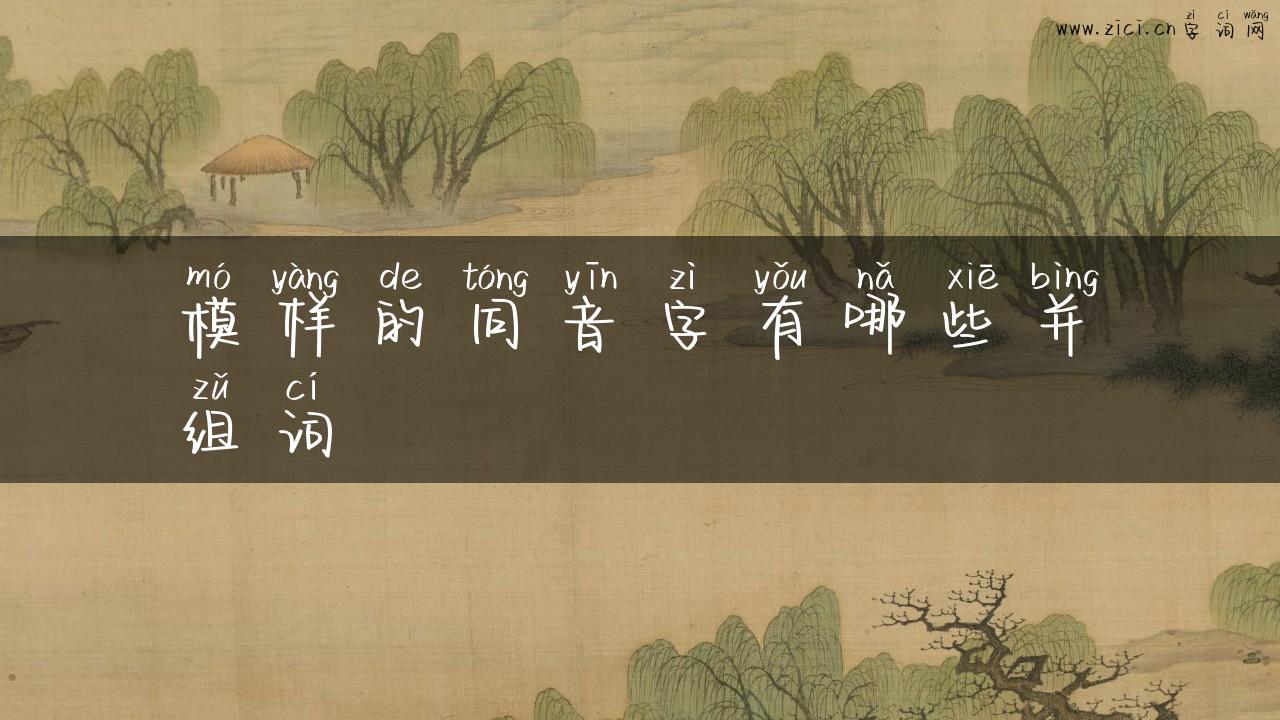 zì cí wǎng
www.zici.cn 字词网
mó yàng de tóng yīn zì yǒu nǎ xiē bìng
模样的同音字有哪些并
zǔ cí
组词